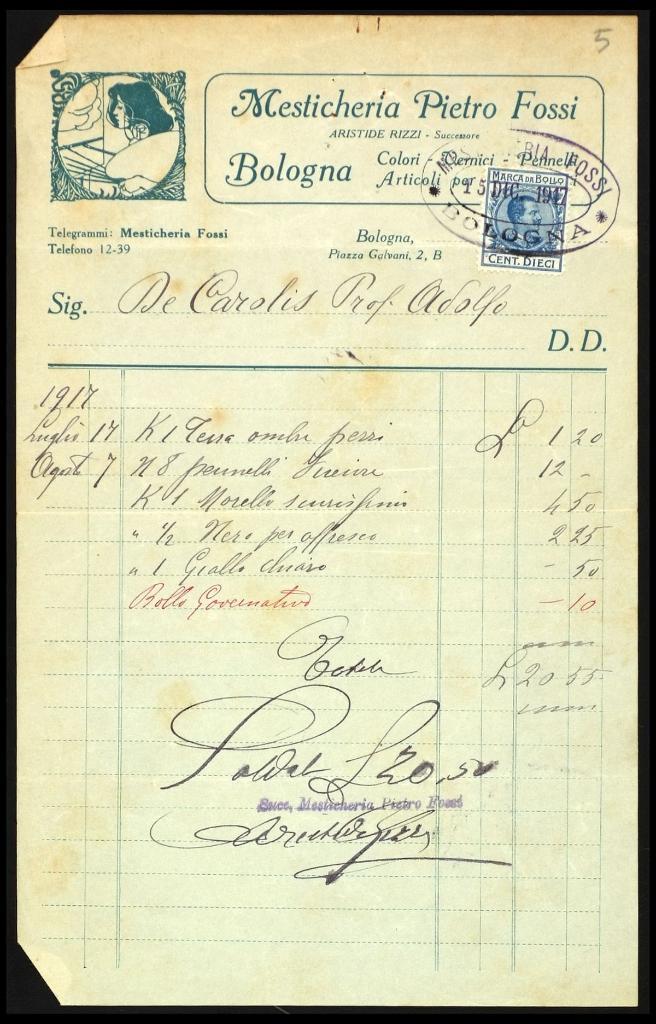 5
Mesticheria Pietro Fossi
ARISTIDE RIZZI - Successore
Bologna
Colori - Vernici - Pennelli
Articoli per
MARCA DA BOLLO
15 DIC. 1917
FOSSI
BOLOGNA
CENT. DIECI
Telegrammi: Mesticheria Fossi
Telefono 12-39
Bologna,
Piazza Galvani, 2, B
Sig. De Carolis Prof. Adolfo
D. D.
1917
Luglio 17 K 1 Terra ombra pezzi L 1 20
Agosto 7 N 8 pennelli 12 -
K 1 Morello scurissimo 4 50
" 1/2 Nero per affresco 2 25
" 1 Giallo chiaro - 50
Bollo Governativo - 10
Totale L 20 55
Saldato L 20,50
Succ. Mesticheria Pietro Fossi